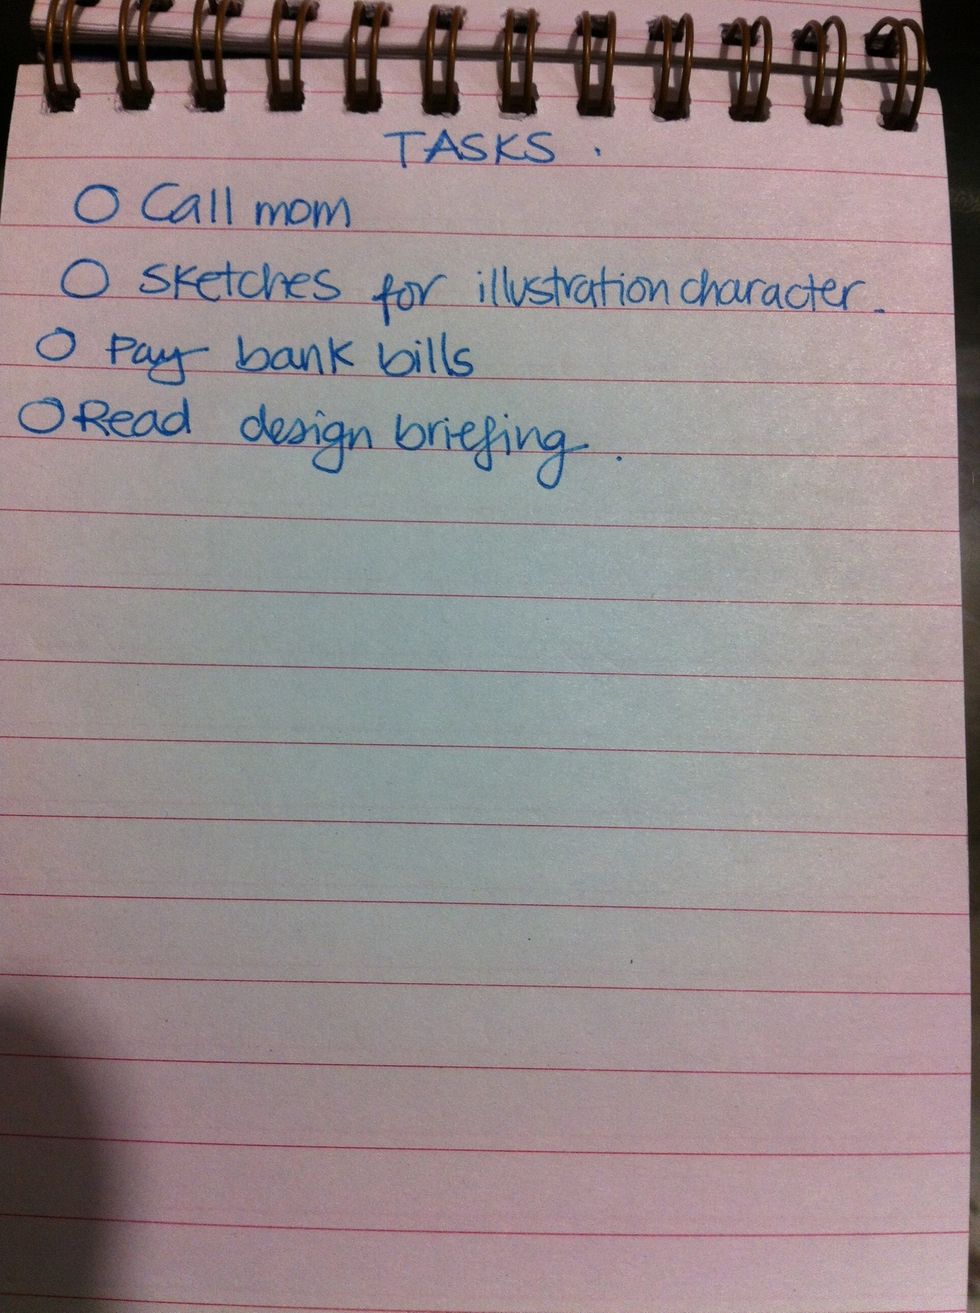 TASKS.
O Call mom
O Sketches for illustration character.
O Pay bank bills
O Read design briefing.